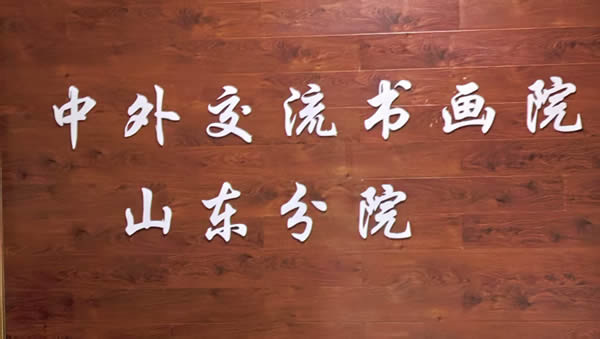 中外交流书画院
山东分院